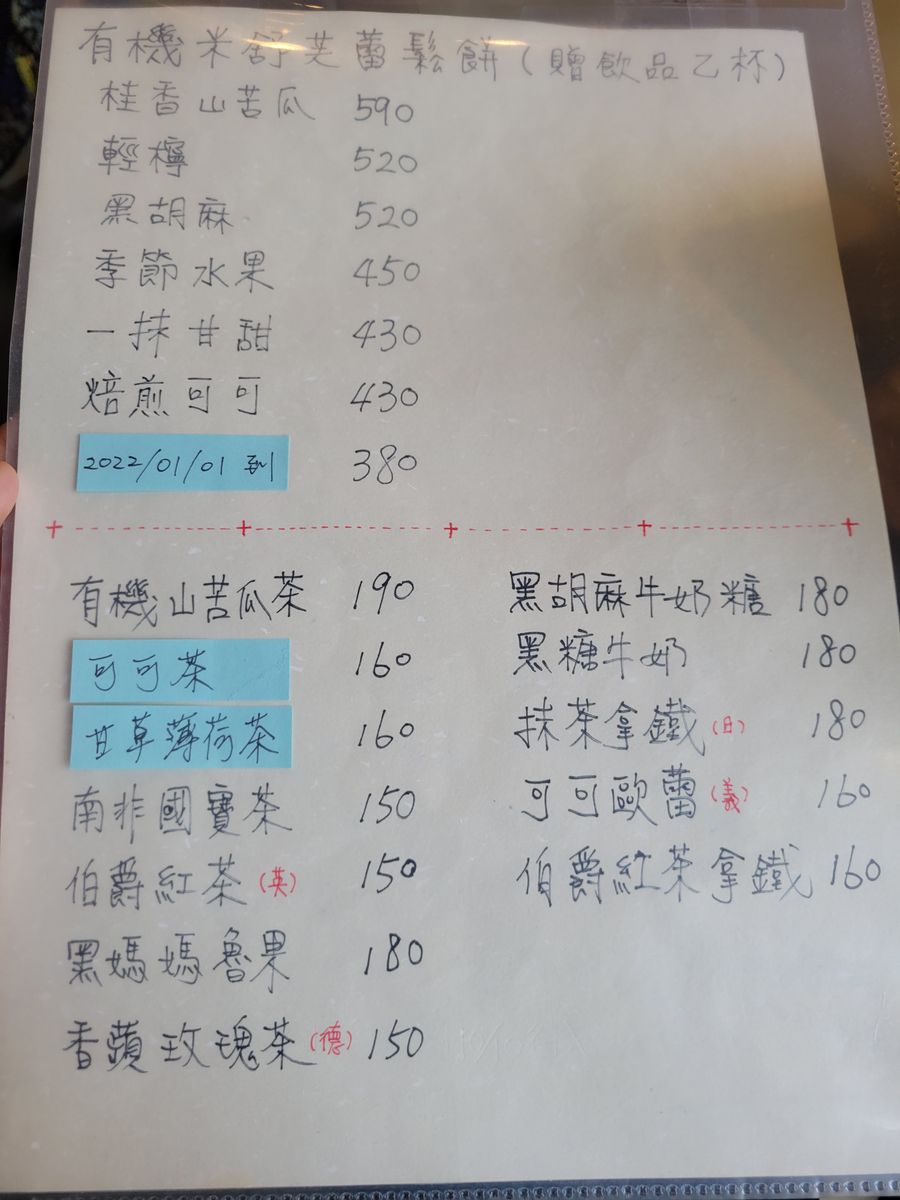 有機米舒芙蕾鬆餅(贈飲品乙杯)
桂香山苦瓜 590
輕檸 520
黑胡麻 520
季節水果 450
一抹甘甜 430
焙煎可可 430
2022/01/01 到 380
有機山苦瓜茶 190
可可茶 160
甘草薄荷茶 160
南非國寶茶 150
伯爵紅茶(英) 150
黑媽媽魯果 180
香蘋玫瑰茶(德) 150
黑胡麻牛奶糖 180
黑糖牛奶 180
抹茶拿鐵(日) 180
可可歐蕾(義) 160
伯爵紅茶拿鐵 160